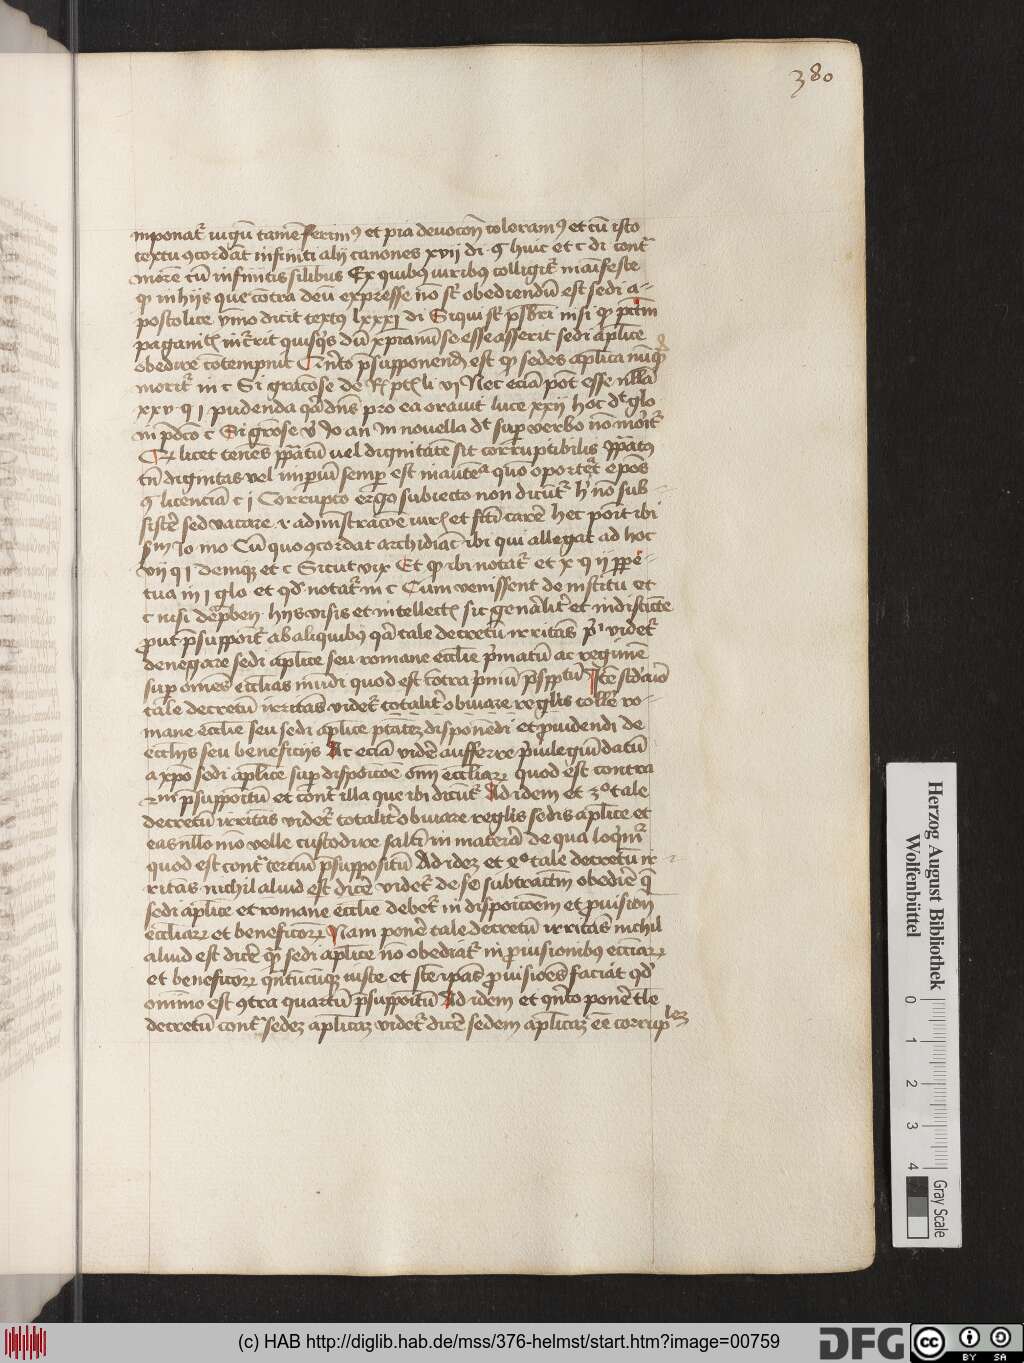 380
imponatur iugum tamen ferimus et pia devocione toleramus et cum isto
textu concordant infiniti alij canones xvij di. § huic et c di cont
cum infinitis silibus Ex quibus iuribus colligitur manifeste
in hijs que contra deum expresse non sit obediendum est sedi a-
postolice ymo dicit textus lxxxi di Si qui sunt presbiteri nisi quod peccatum
paganitatis incurrit quisquis dum xpianum se esse asserit sedi aplice
obedire contempnit est quod sedes aplica nunquam
moritur in c Si graciose de Rescriptis li vi Nec eciam potest esse nulla
xxv q i pudenda quia dns pro ea oravit luce xxij hoc dicit glo
in predicto c Si graciose Jo an in novella dicit super verbo non
licet tenens papatum vel dignitatem sit corruptibilis papatus
tamen dignitas vel imperium semper est
licenciam c i Corrupto ergo subiecto non dicitur non sub-
sistere sed vacare et carere hec ponit ibi
Jo mo Cum quo concordat archidiac ibi qui allegat ad hoc
vij q i denique et c Sicut vir Et quod ibi notatur et x q ij perpe-
tua in i glo et quod notatur in c Cum venissent de institu et
c nisi de preben. hijs visis et intellectis sic generaliter et indistincte
prout presupponitur ab aliquibus quia tale decretum irritans videtur
denegare sedi aplice seu romane ecclie primatum ac regimen
super omnes ecclias mundi quod est contra primum presuppositum Item
tale decretum irritans videtur totaliter obviare regulis ro-
mane ecclie seu sedi aplice disponendi et providendi de
ecclijs seu beneficijs Ac eciam videtur aufferre privilegium datum
a xpo sedi aplice super disposicione omnium eccliarum quod est contra
presuppositum et contra illa que ibi dicuntur Ad idem et 3o tale
decretum irritans videtur totaliter obviare regulis sedis aplice et
eas nullo modo velle custodire saltem in materia de qua loquimur
quod est contra tercium presuppositum Ad idem et 4o tale decretum ir-
ritans nichil aliud est dicere videtur de se subtractum obedire
sedi aplice et romane ecclie debetur in disposicionem et provisionem
eccliarum et beneficiorum Nam ponere tale decretum irritans nichil
aliud est dicere quam sedi aplice non obediatur in provisionibus eccliarum
et beneficiorum quantumcumque iuste et sancte ipas provisiones faciat quod
omnino est contra quartum presuppositum Ad idem et quinto ponere tale
decretum contra sedem aplicam videtur dicere sedem aplicam esse corruplem
Herzog August Bibliothek
Wolfenbüttel
0 1 2 3 4
Gray Scale
(c) HAB http://diglib.hab.de/mss/376-helmst/start.htm?image=00759
DFG
cc BY SA